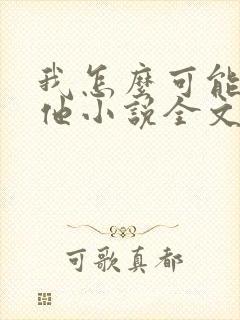 我怎麽可能
他小說全文
可歌真都